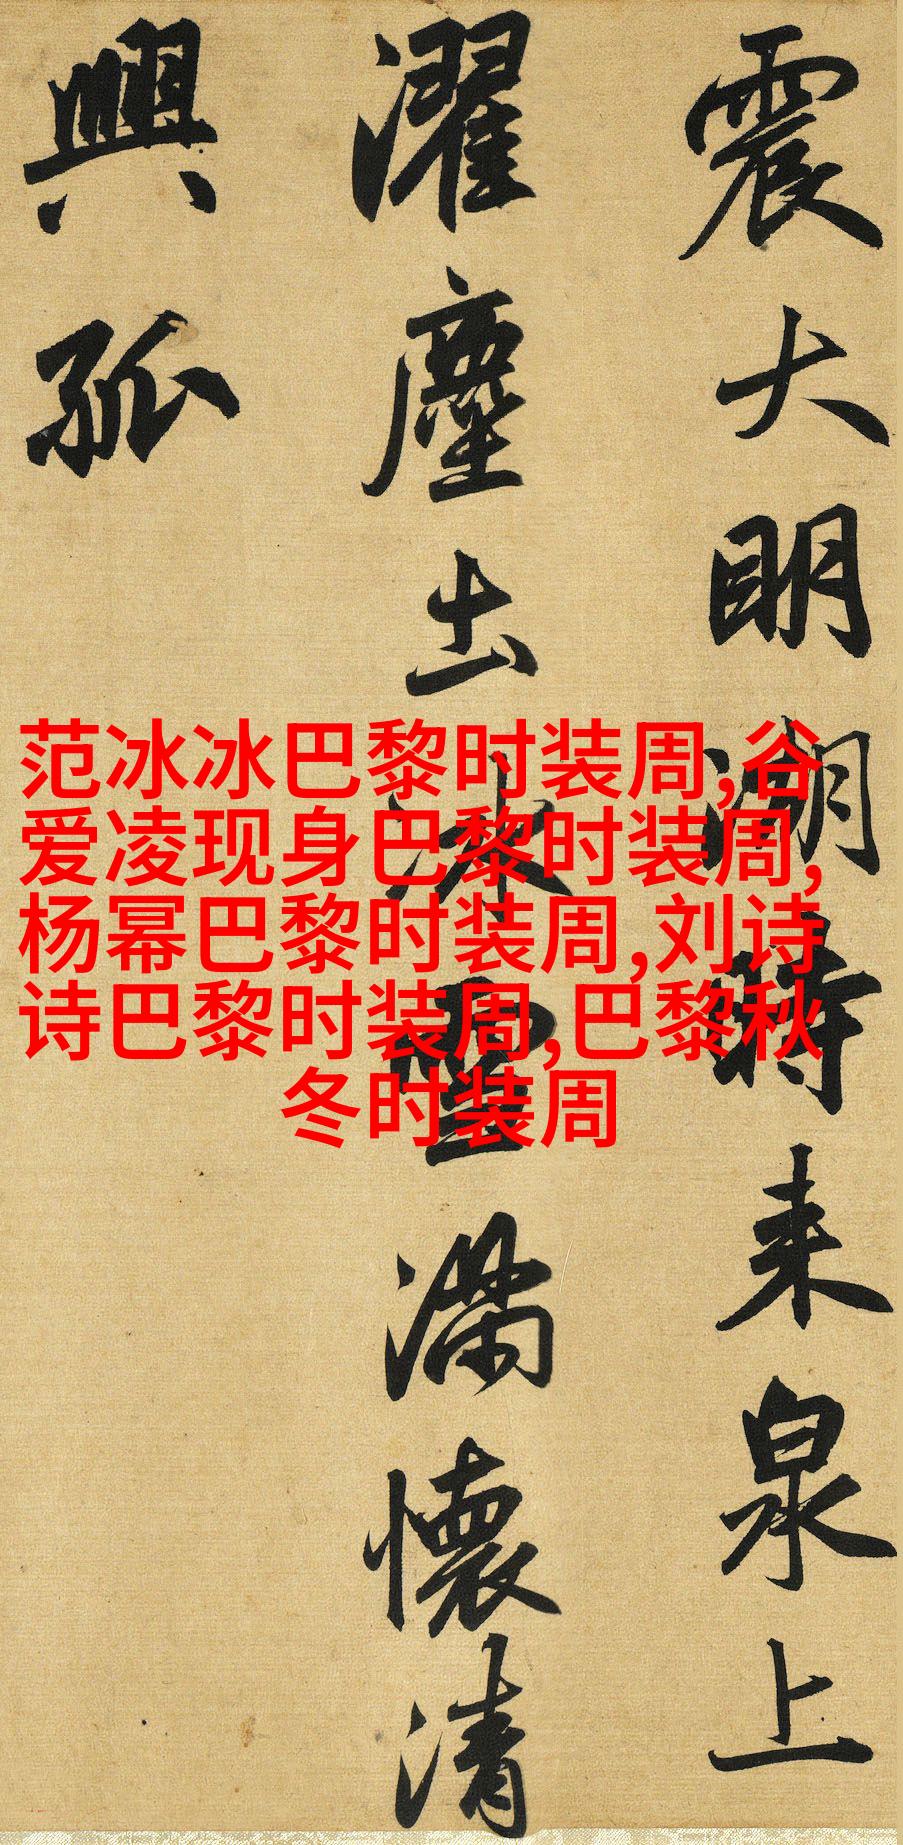 震大明湖時来泉上
濯塵土冰雪滿懷清
興孤
范冰冰巴黎时装周,谷
爱凌现身巴黎时装周,
杨幂巴黎时装周,刘诗
诗巴黎时装周,巴黎秋
冬时装周